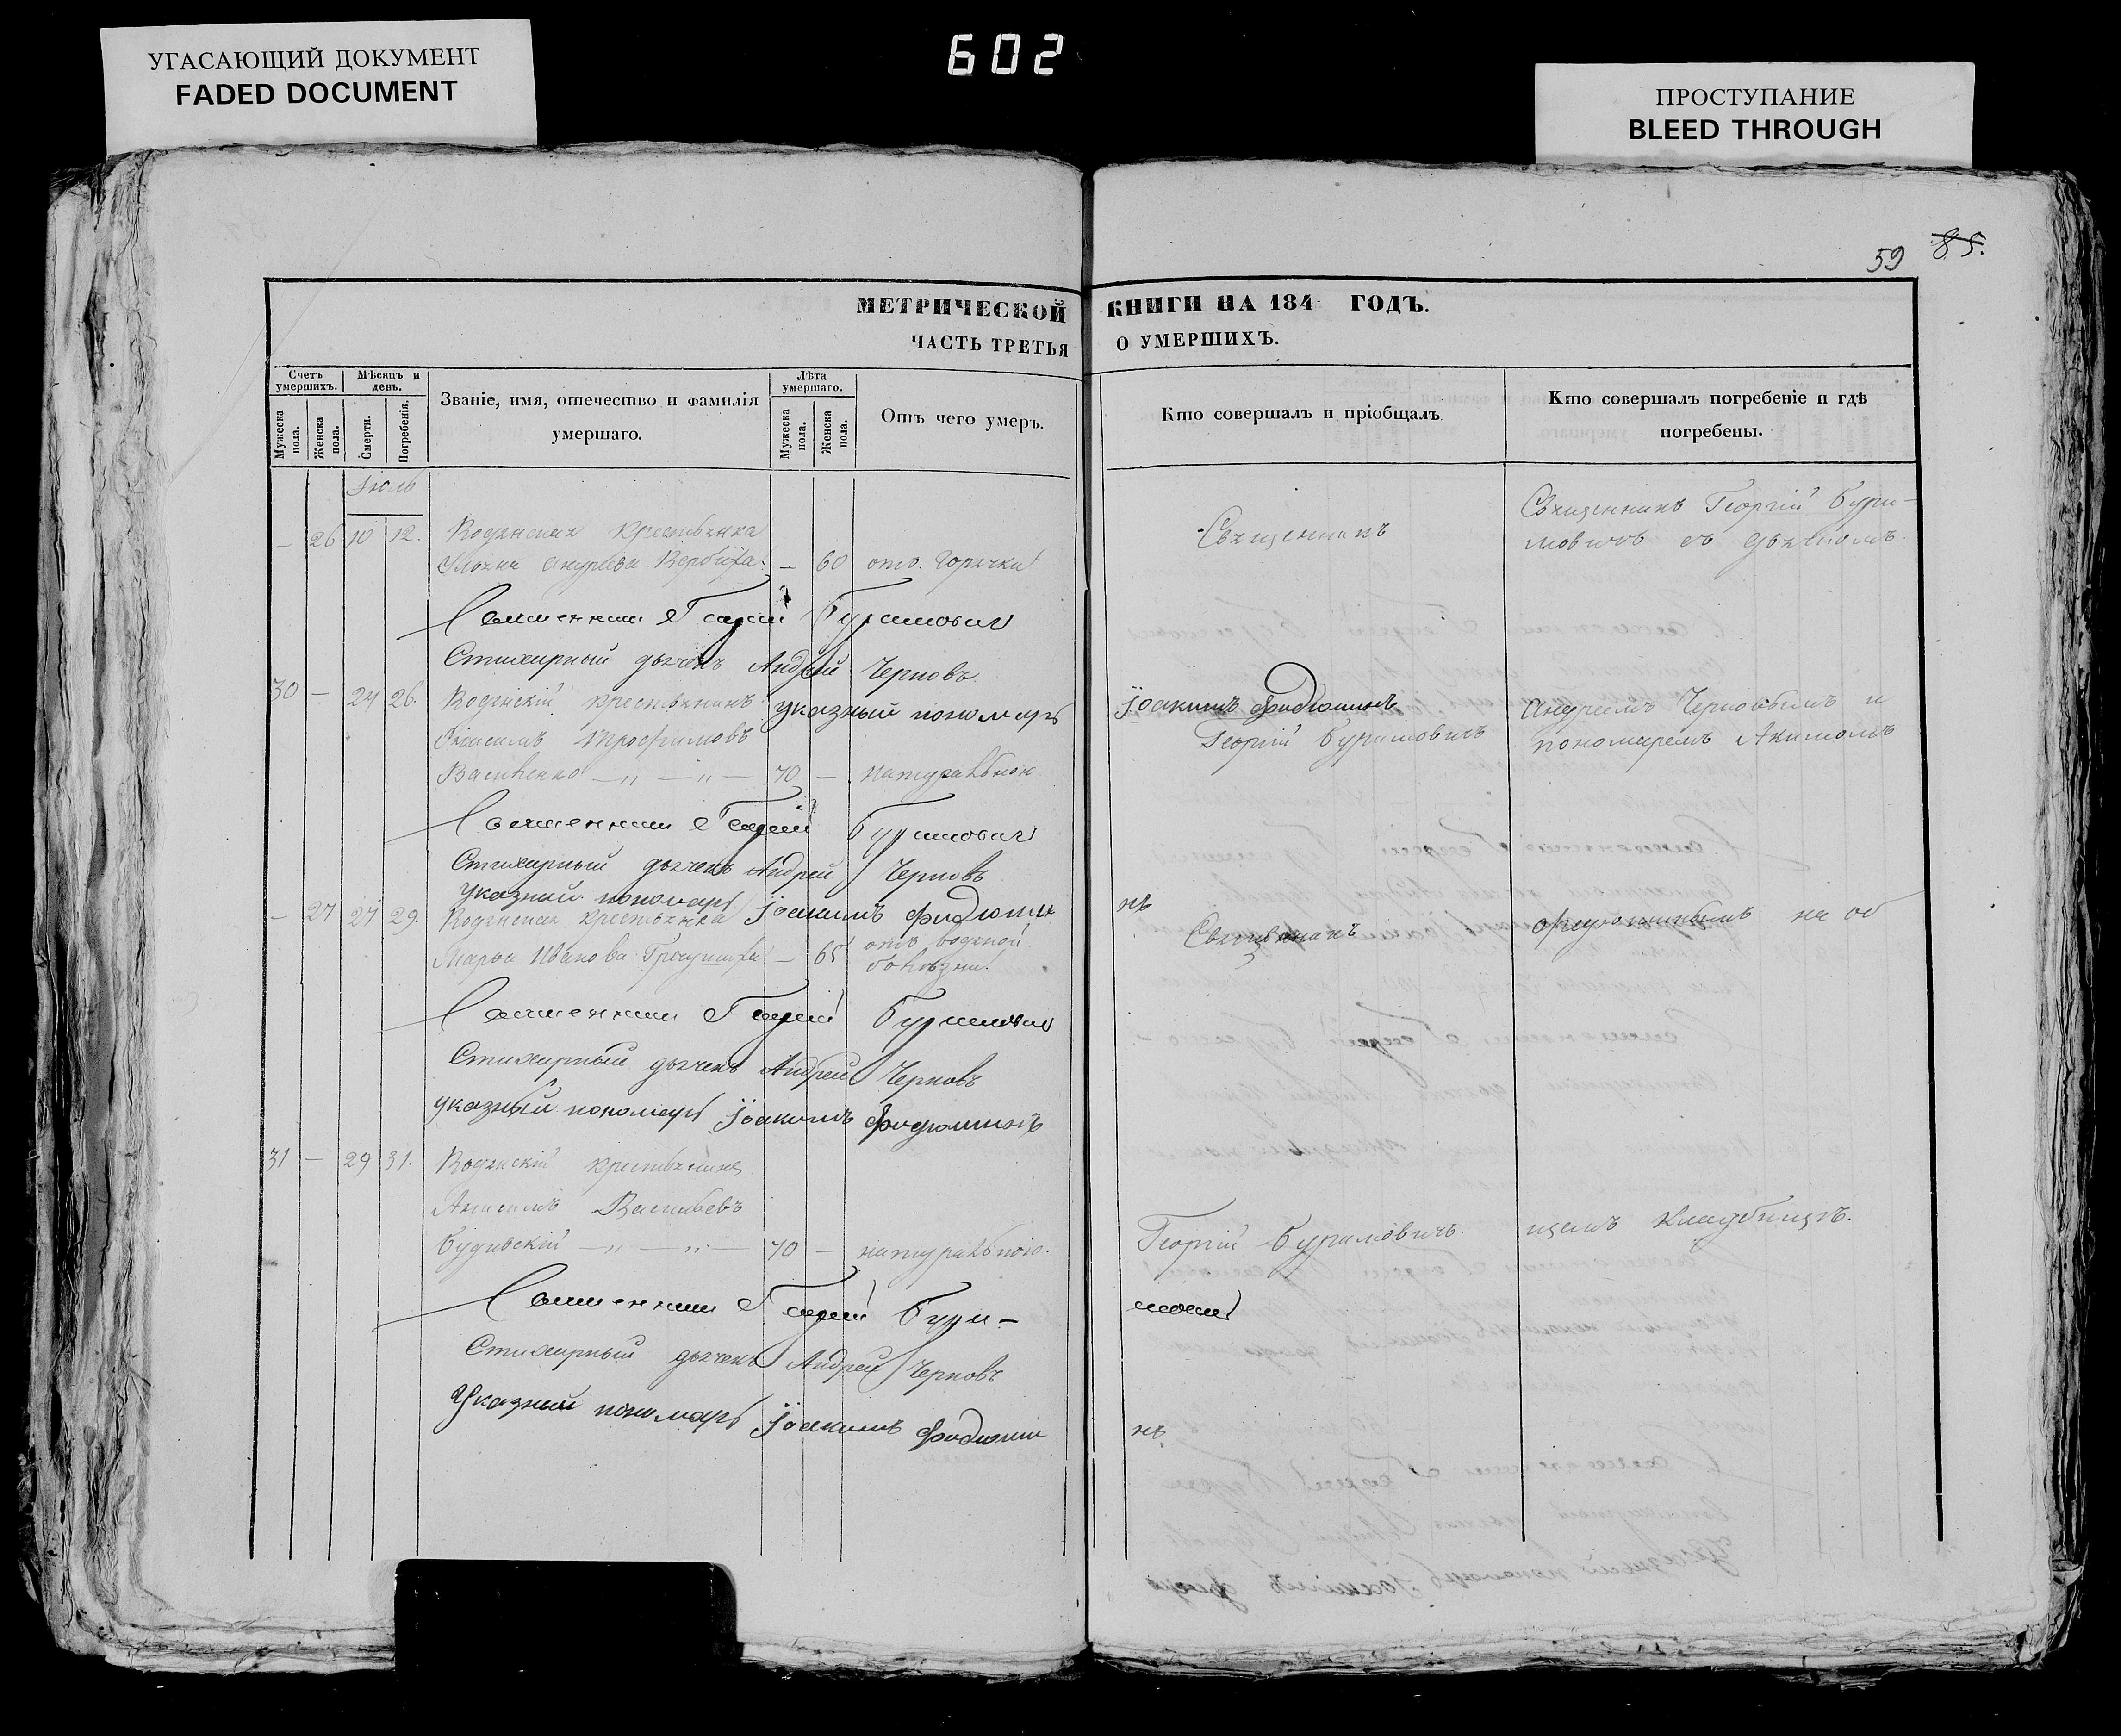 УГАСАЮЩИЙ ДОКУМЕНТ
FADED DOCUMENT
602
ПРОСТУПАНИЕ
BLEED THROUGH
59 85.
МЕТРИЧЕСКОЙ КНИГИ НА 184 ГОДЪ.
ЧАСТЬ ТРЕТЬЯ О УМЕРШИХЪ.
Счетъ умершихъ.
Мѣсяцъ и день.
Званіе, имя, отечество и фамилія умершаго.
Лѣта умершаго.
Отъ чего умеръ.
Кто совершалъ и пріобщалъ
Кто совершалъ погребеніе и гдѣ погребены.
Мужеска пола.
Женска пола.
Смерти.
Погребенія.
Мужеска пола.
Женска пола.
Іюль
— 26 10 12. крестьянка
— 60 отъ горячки
Священникъ
Священникъ Георгій Бури-
мовичъ съ дьячкомъ
Священникъ Георгій Буримовичъ
Стихарный дьячекъ Андрей Черновъ
указный пономарь Іоакимъ Фидюшинъ
30 — 24 26. крестьянинъ
Трофимовъ
Василенко — „ — „ — 70 — натуральною
Георгій Буримовичъ
Андреемъ Черновымъ и
пономаремъ Акимомъ
Священникъ Георгій Буримовичъ
Стихарный дьячекъ Андрей Черновъ
указный пономарь Іоакимъ Фидюшинъ
— 27 27 29. крестьянка
Марѳа Иванова — 65 отъ водяной
болѣзни.
Священникъ
на об
Священникъ Георгій Буримовичъ
Стихарный дьячекъ Андрей Черновъ
указный пономарь Іоакимъ Фидюшинъ
31 — 29 31. крестьянинъ
Анисимъ Васильевъ
— „ — „ — 70 — натуральною.
Георгій Буримовичъ.
щемъ кладбищѣ.
Священникъ Георгій Бури-
мовичъ
Стихарный дьячекъ Андрей Черновъ
Указный пономарь Іоакимъ Фидюши
нъ